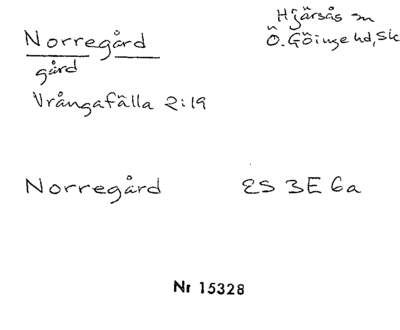 Norregård
Hjärsås sn
Ö. Göinge hd, Sk
gård
Vrångafälla 2:19
Norregård ES 3E 6a
Nr 15328